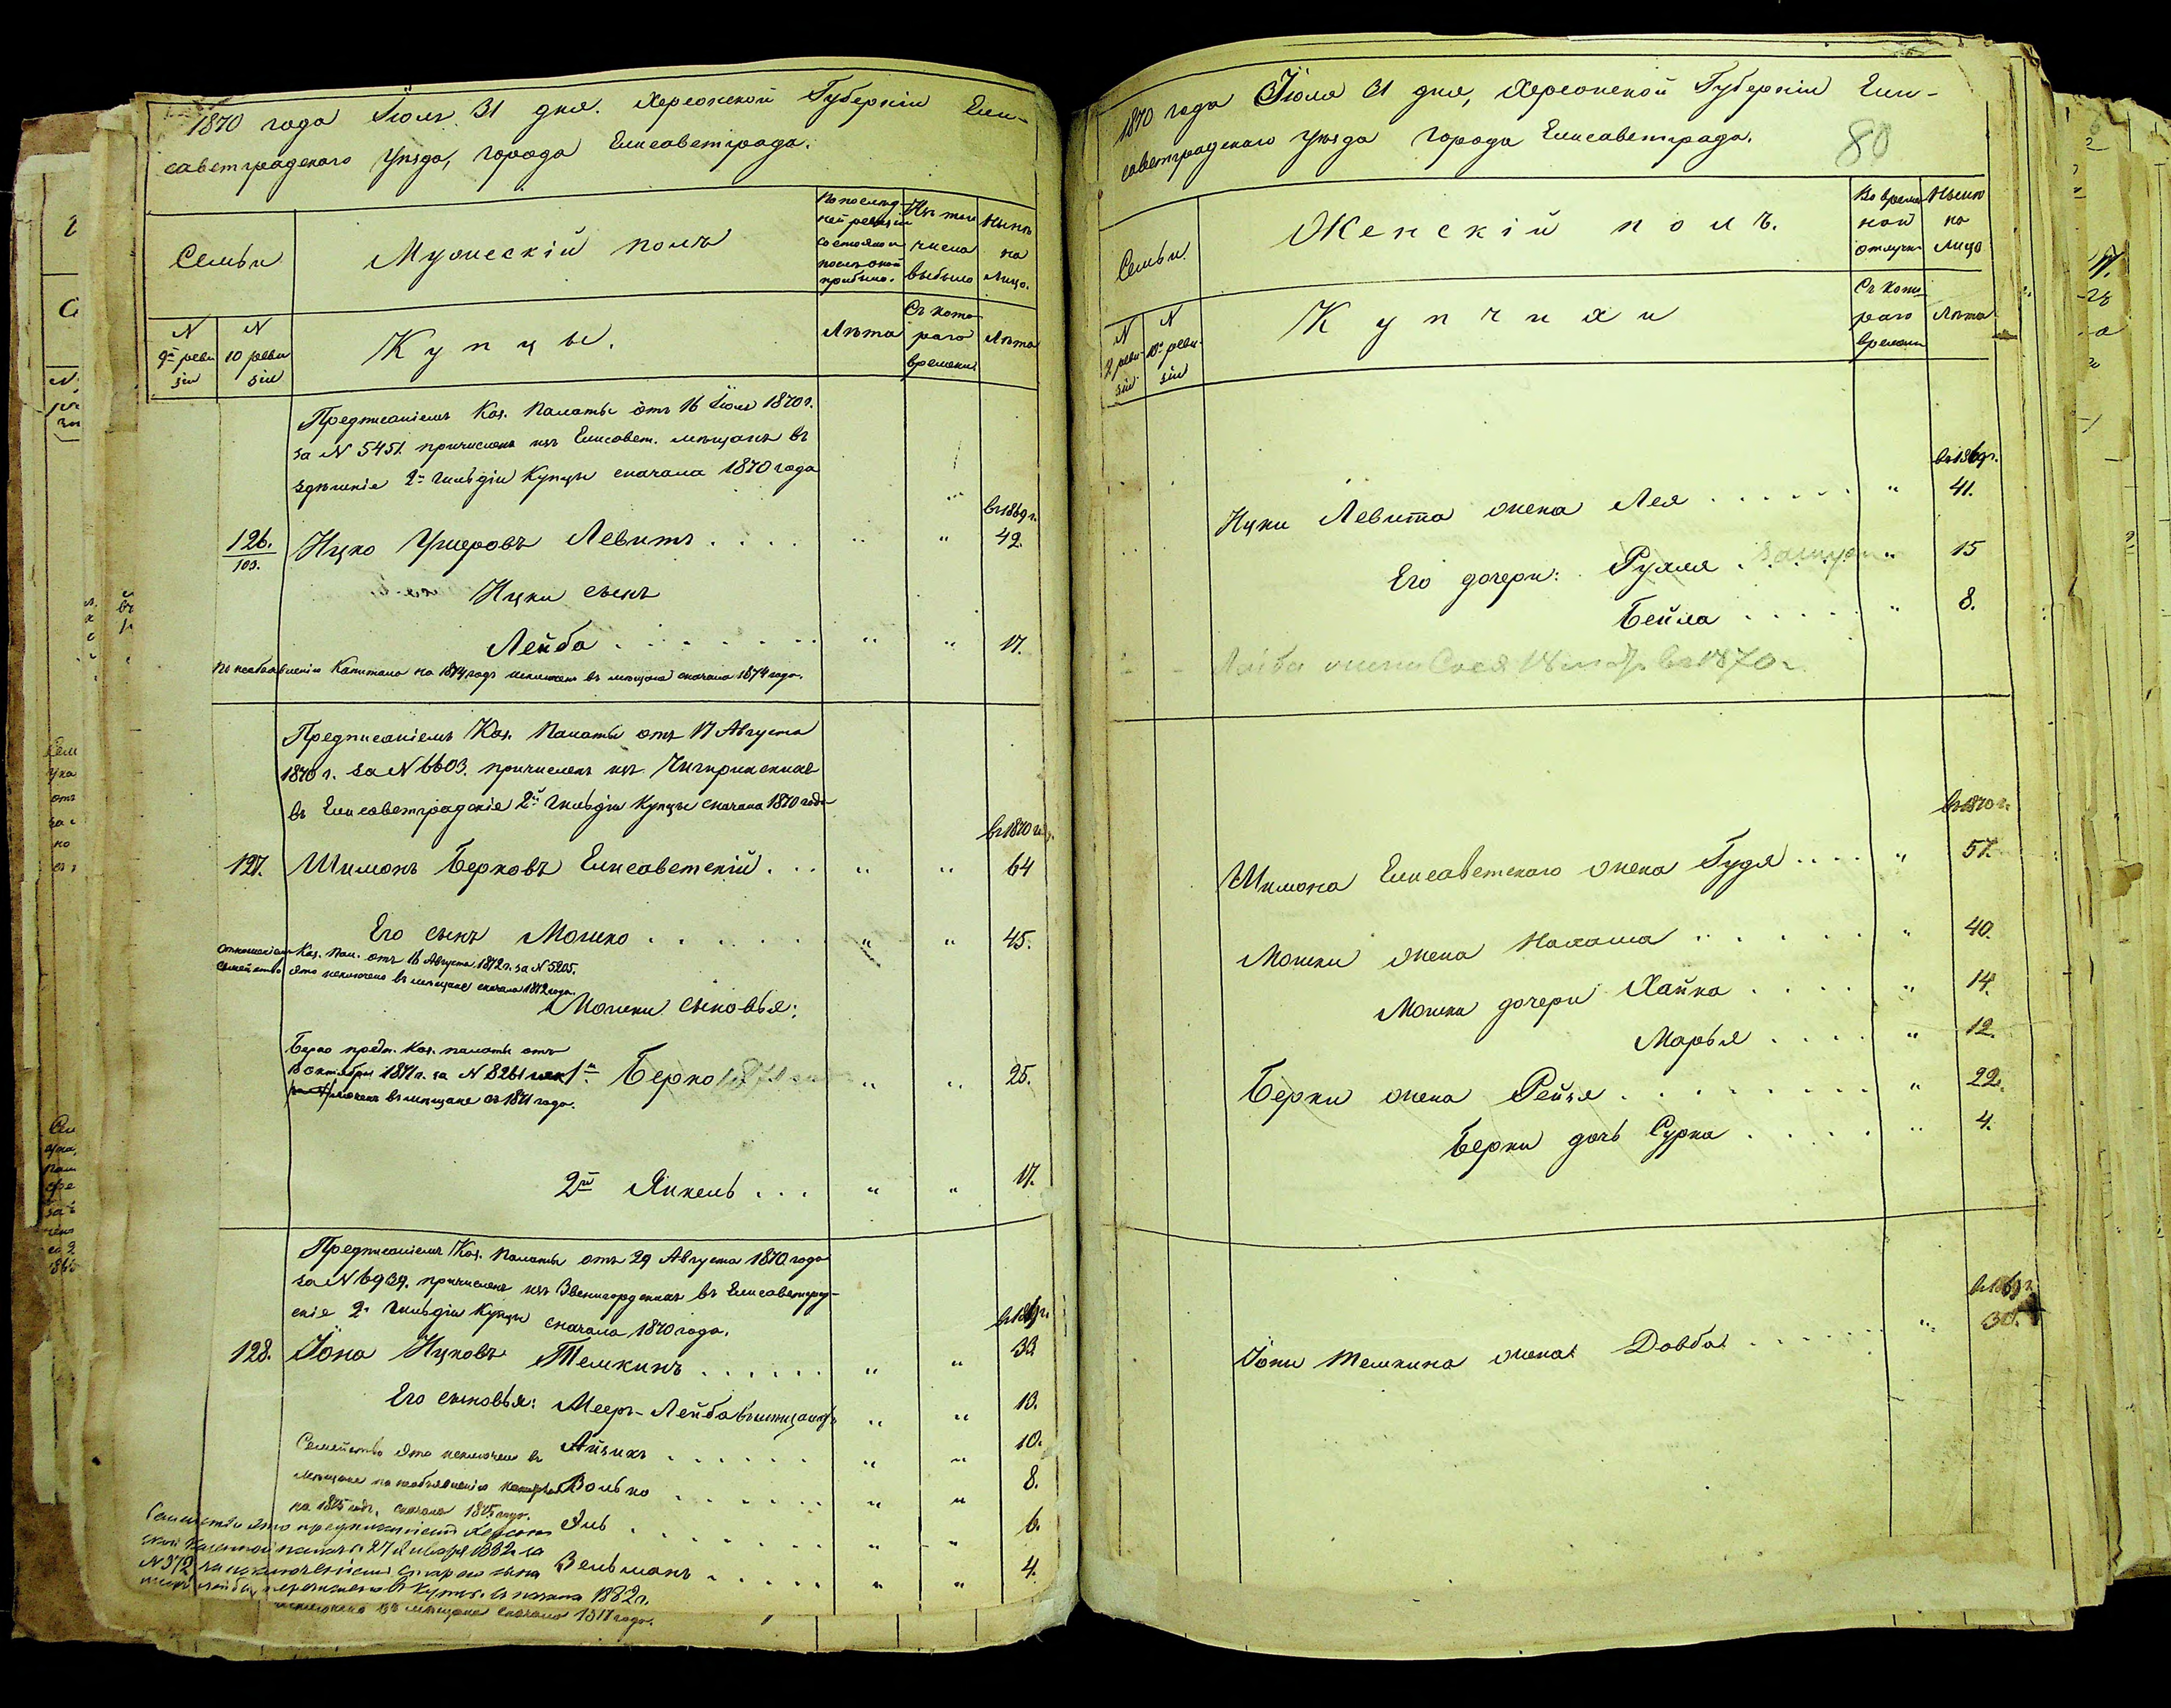 1870 года Іюля 31 дня. Херсонской Губерніи Ели-
саветградскаго Уѣзда, города Елисаветграда.
Семьи
Мужескій полъ
По послѣд-
ней ревизіи
состояло и
послѣ оной
прибыло.
Изъ того
числа
выбыло
Нынѣ
на
лицо.
N
9й реви
зіи
N
10 реви
зіи
Купцы.
Лѣта
Съ кото
раго
времени
Лѣта
Предписаніемъ Каз. Палаты отъ 16 Іюля 1870 г.
за N 5451. причисленъ изъ Елисавет. мѣщанъ въ
здѣшніе 2й гильдіи Купцы сначала 1870 года
въ 1869 г.
126.
103.
Ицко Ушеровъ Левитъ . . . . " " 42.
Ицки сынъ
Лейба . . . . . . . " " 17.
По необъявленію Капитала на 1874 годъ исключенъ въ мѣщане сначала 1874 года.
Предписаніемъ Каз. Палаты отъ 17 Августа
1870 г. за N 6603. причисленъ изъ Чигиринскихъ
въ Елисаветградскіе 2й гильдіи Купцы сначала 1870 года
въ 1870 г.
127. Шимонъ Берковъ Елисаветскій . . . " " 64
Его сынъ Мошко . . . . . . . " " 45.
Отношеніемъ Каз. Пал. отъ 16 Августа 1872 г. за N 5205.
Семейство это исключено въ мѣщане сначала 1872 года.
Мошки сыновья:
Берко предп. Каз. палаты отъ
октября 1871 г. за N 8261 иск
ключенъ въ мѣщане съ 1871 года.
1й Берко " " 25.
2й Янкель . . . " " 17.
Предписаніемъ Каз. Палаты отъ 29 Августа 1870 года
за N 6939. причисленъ изъ Звенигородскихъ въ Елисаветград-
скіе 2й гильдіи Купцы сначала 1870 года.
128. Іона Ицковъ Темкинъ . . . . . . " " 33
Его сыновья: Мееръ-Лейба " " 13.
Айзикъ . . . . . . " " 10.
Семейство это исключено въ
мѣщане по необъявленію капитала
на 1875 годъ, сначала 1875 года.
Волько . . . . . . " " 8.
Янь . . . . . . " " 6.
Зельманъ . . . . . " " 4.
Семейство это предписаніемъ Херсон
ской Казенной палаты 27 Января 1882 за
N 372 за исключеніемъ старшаго сына
перечислено въ Купцы съ начала 1882 г.
исключено въ мѣщане сначала года.
1870 года Іюля 31 дня, Херсонской Губерніи Ели-
саветградскаго Уѣзда города Елисаветграда.
80
Семьи
Женскій полъ.
Во времен
ной
отлучкѣ
Нынѣ
на
лицо
N
9 реви-
зіи
N
10й реви-
зіи
Купчихи
Съ кото
раго
времени
Лѣта
въ 1869 г.
Ицки Левита жена Лея . . . . . . " 41.
Его дочери: Рухля . замужемъ " 15
Бейла . . . . . " 8.
Лейбы жена Сося въ 1870 г.
въ 1870 г.
Шимона Елисаветскаго жена Гудя . . . . " 57.
Мошки жена Малаша . . . . . . " 40.
Мошки дочери Хайка . . . . " 14.
Марья . . . . " 12.
Берки жена Рейзя . . . . . . . . " 22.
Берки дочь Сурка . . . . . " 4.
въ 1869 г.
Іоны Темкина жена Довба . . . . . . " 30.